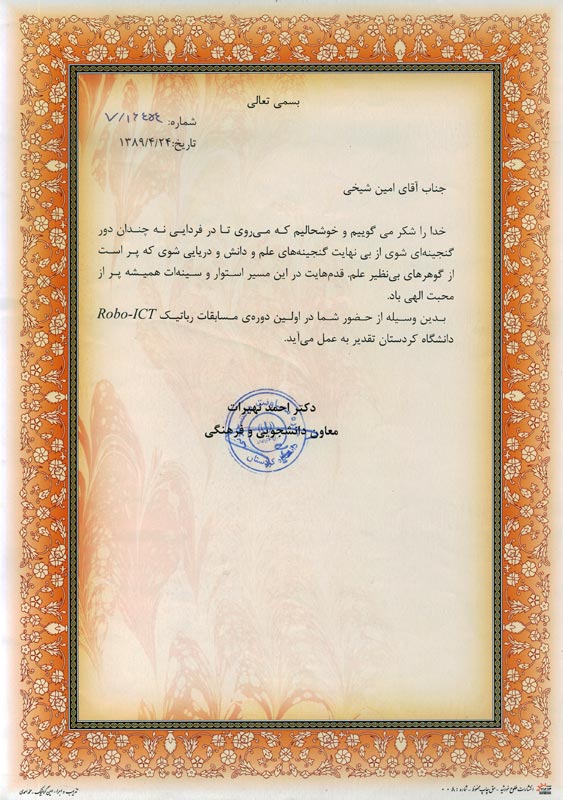 بسمی تعالی
شماره:
تاریخ:۱۳۸۹/۴/۲۴
جناب آقای امین شیخی
خدا را شکر می گوییم و خوشحالیم که می‌روی تا در فردایی نه چندان دور
گنجینه‌ای شوی از بی نهایت گنجینه‌های علم و دانش و دریایی شوی که پر است
از گوهرهای بی‌نظیر علم. قدم‌هایت در این مسیر استوار و سینه‌ات همیشه پر از
محبت الهی باد.
بدین وسیله از حضور شما در اولین دوره‌ی مسابقات رباتیک Robo-ICT
دانشگاه کردستان تقدیر به عمل می‌آید.
دکتر احمد تهیرات
معاون دانشجویی و فرهنگی